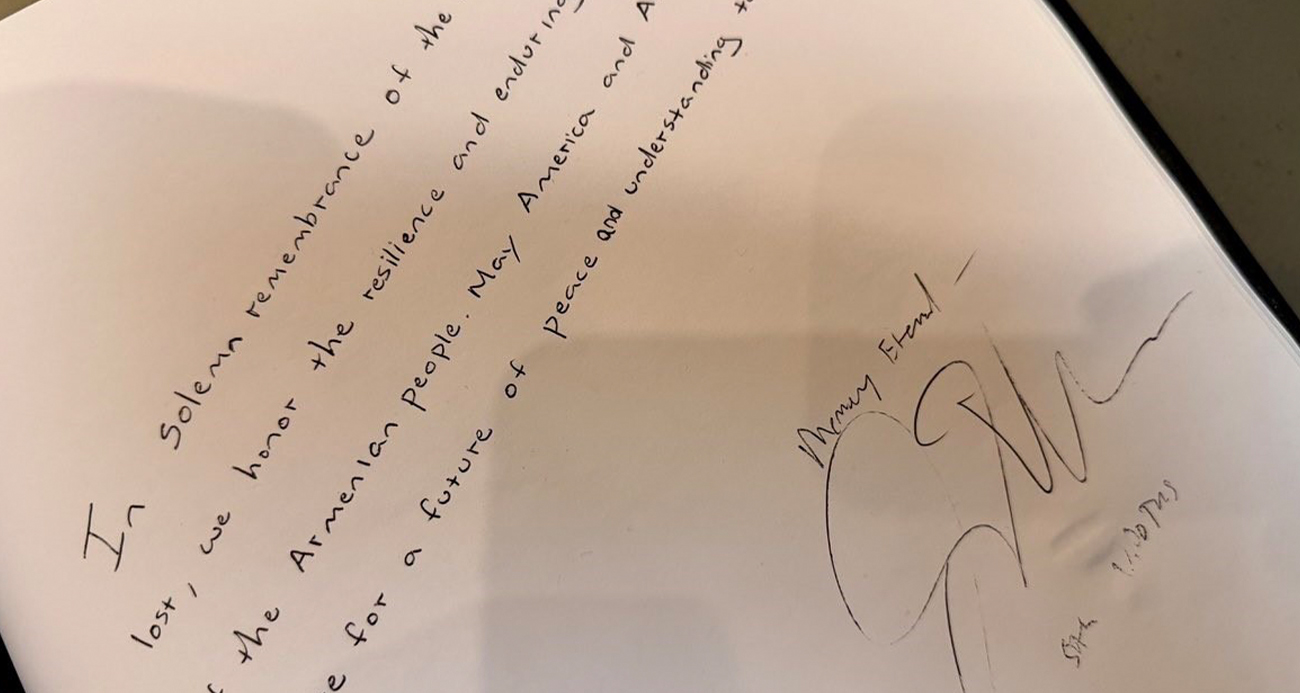 In Solemn remembrance of the
lost, we honor the resilience and enduring
the Armenian people. May America and
for a future of peace and understanding
Memory Eternal –